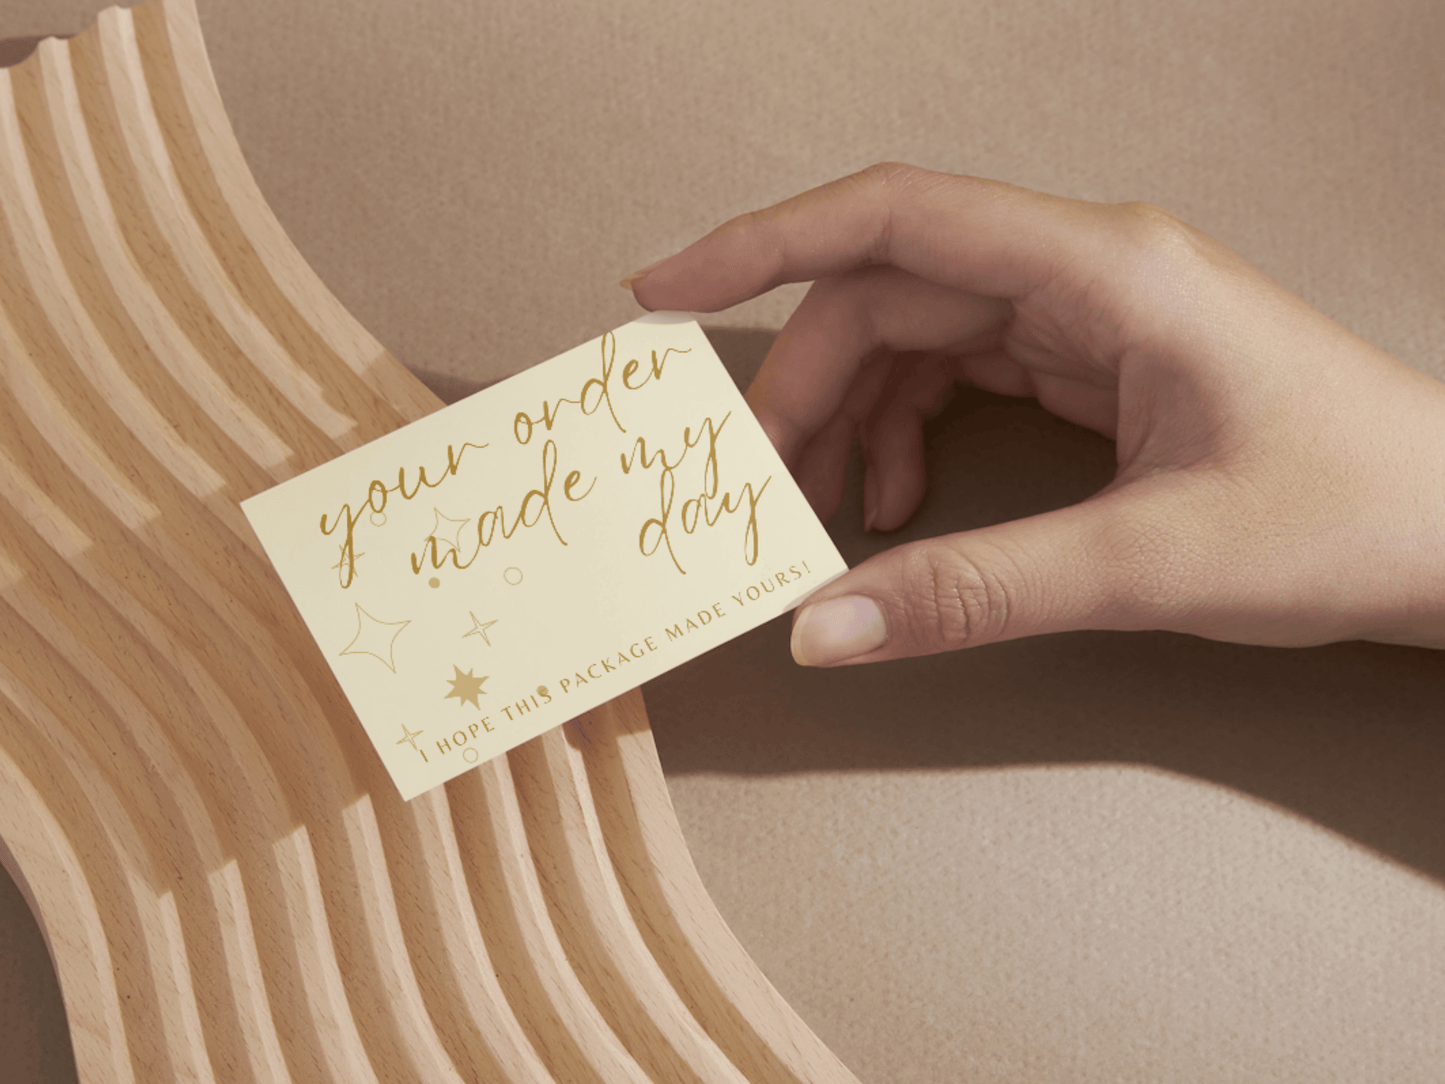 your order
made my
day
I HOPE THIS PACKAGE MADE YOURS!